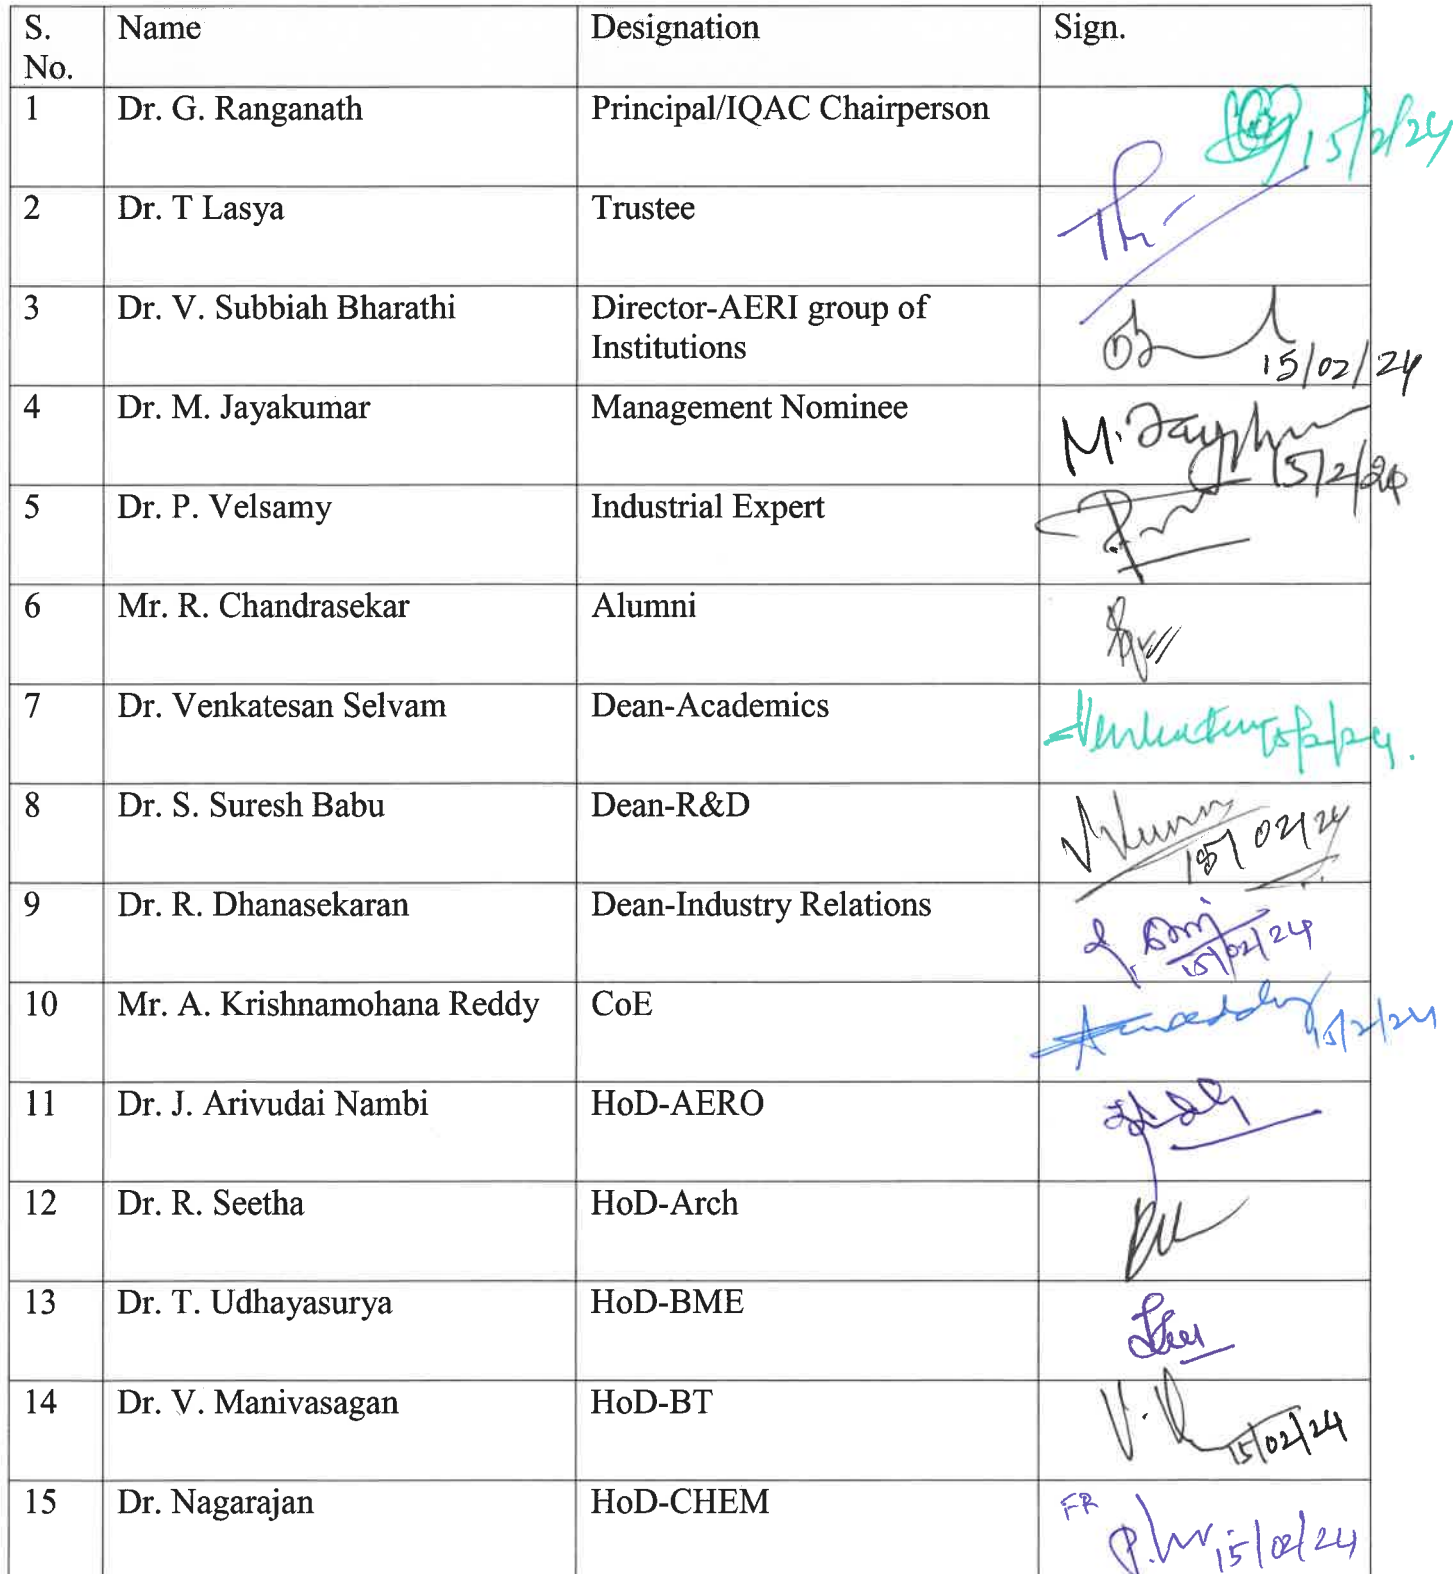 S. No. Name Designation Sign.
1 Dr. G. Ranganath Principal/IQAC Chairperson 15/2/24
2 Dr. T Lasya Trustee
3 Dr. V. Subbiah Bharathi Director-AERI group of
Institutions 15/02/24
4 Dr. M. Jayakumar Management Nominee M. 15/2/24
5 Dr. P. Velsamy Industrial Expert
6 Mr. R. Chandrasekar Alumni
7 Dr. Venkatesan Selvam Dean-Academics 15/2/24.
8 Dr. S. Suresh Babu Dean-R&D 15/02/24
9 Dr. R. Dhanasekaran Dean-Industry Relations 15/02/24
10 Mr. A. Krishnamohana Reddy CoE 15/2/24
11 Dr. J. Arivudai Nambi HoD-AERO
12 Dr. R. Seetha HoD-Arch
13 Dr. T. Udhayasurya HoD-BME
14 Dr. V. Manivasagan HoD-BT 15/02/24
15 Dr. Nagarajan HoD-CHEM FR 15/02/24